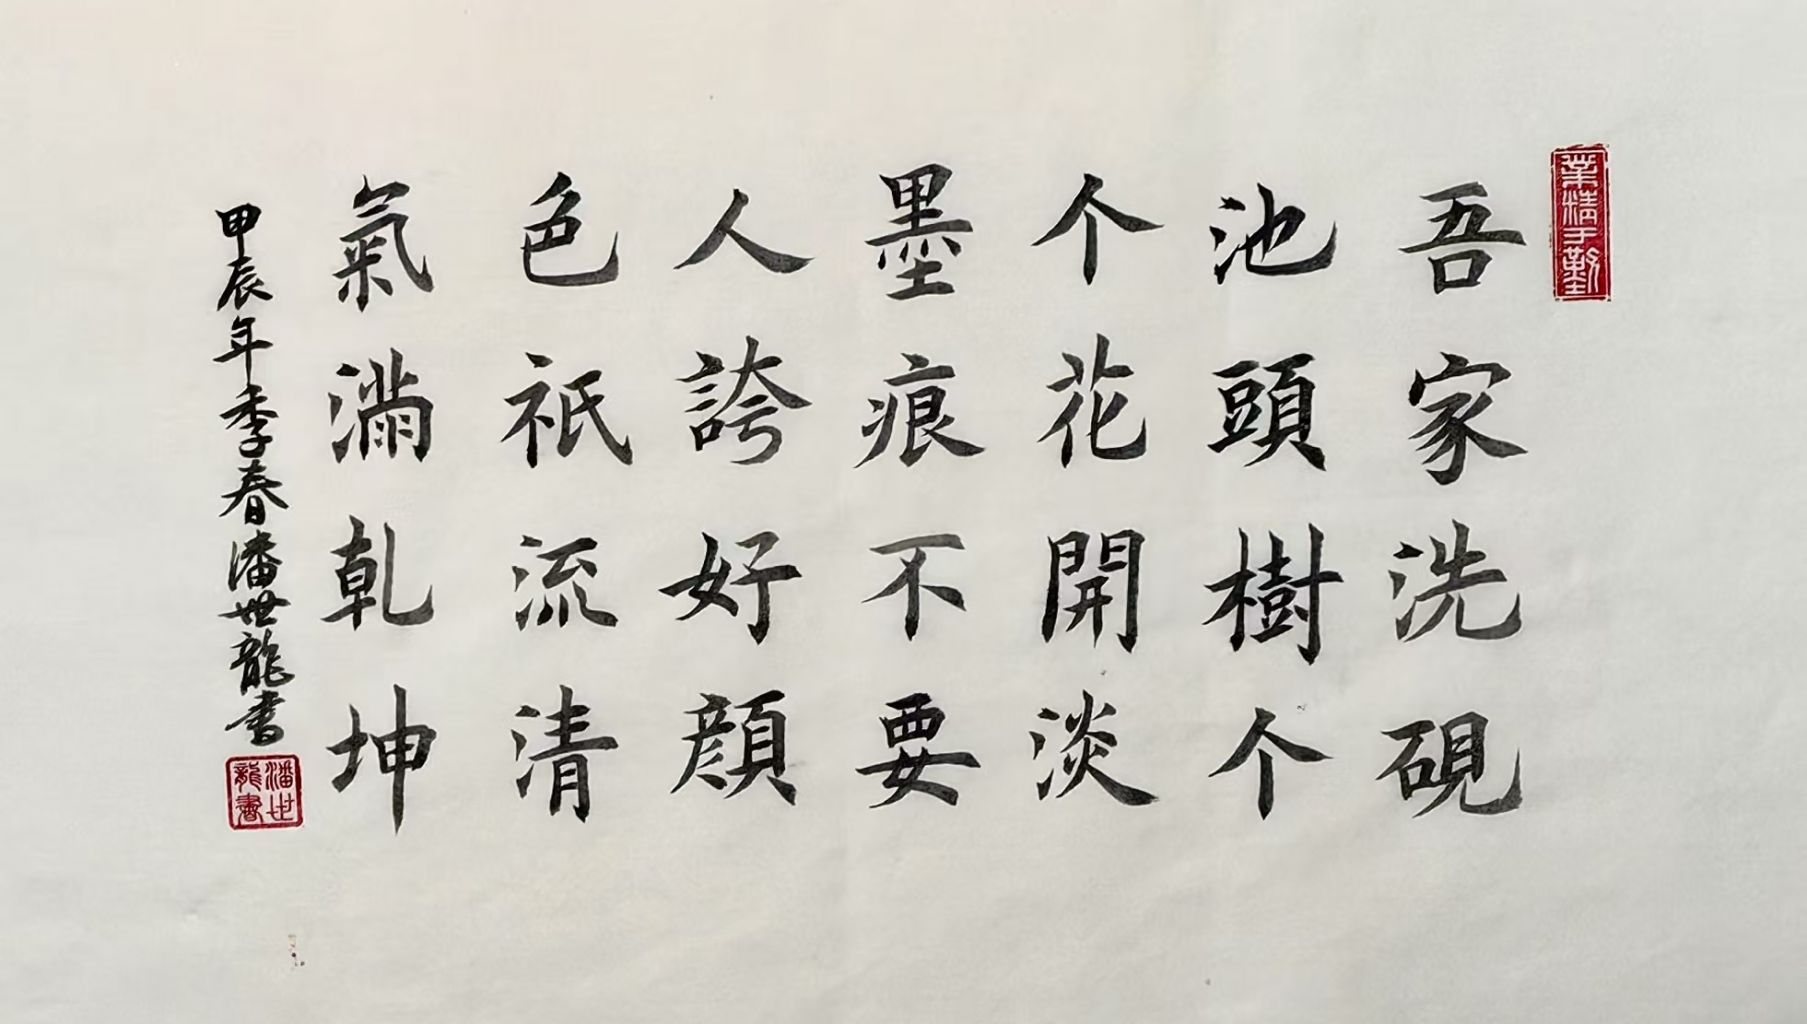 業精于勤
吾家洗硯
池頭樹个
个花開淡
墨痕不要
人誇好顔
色祇流清
氣滿乾坤
甲辰年季春潘世龍書
潘世
龍書